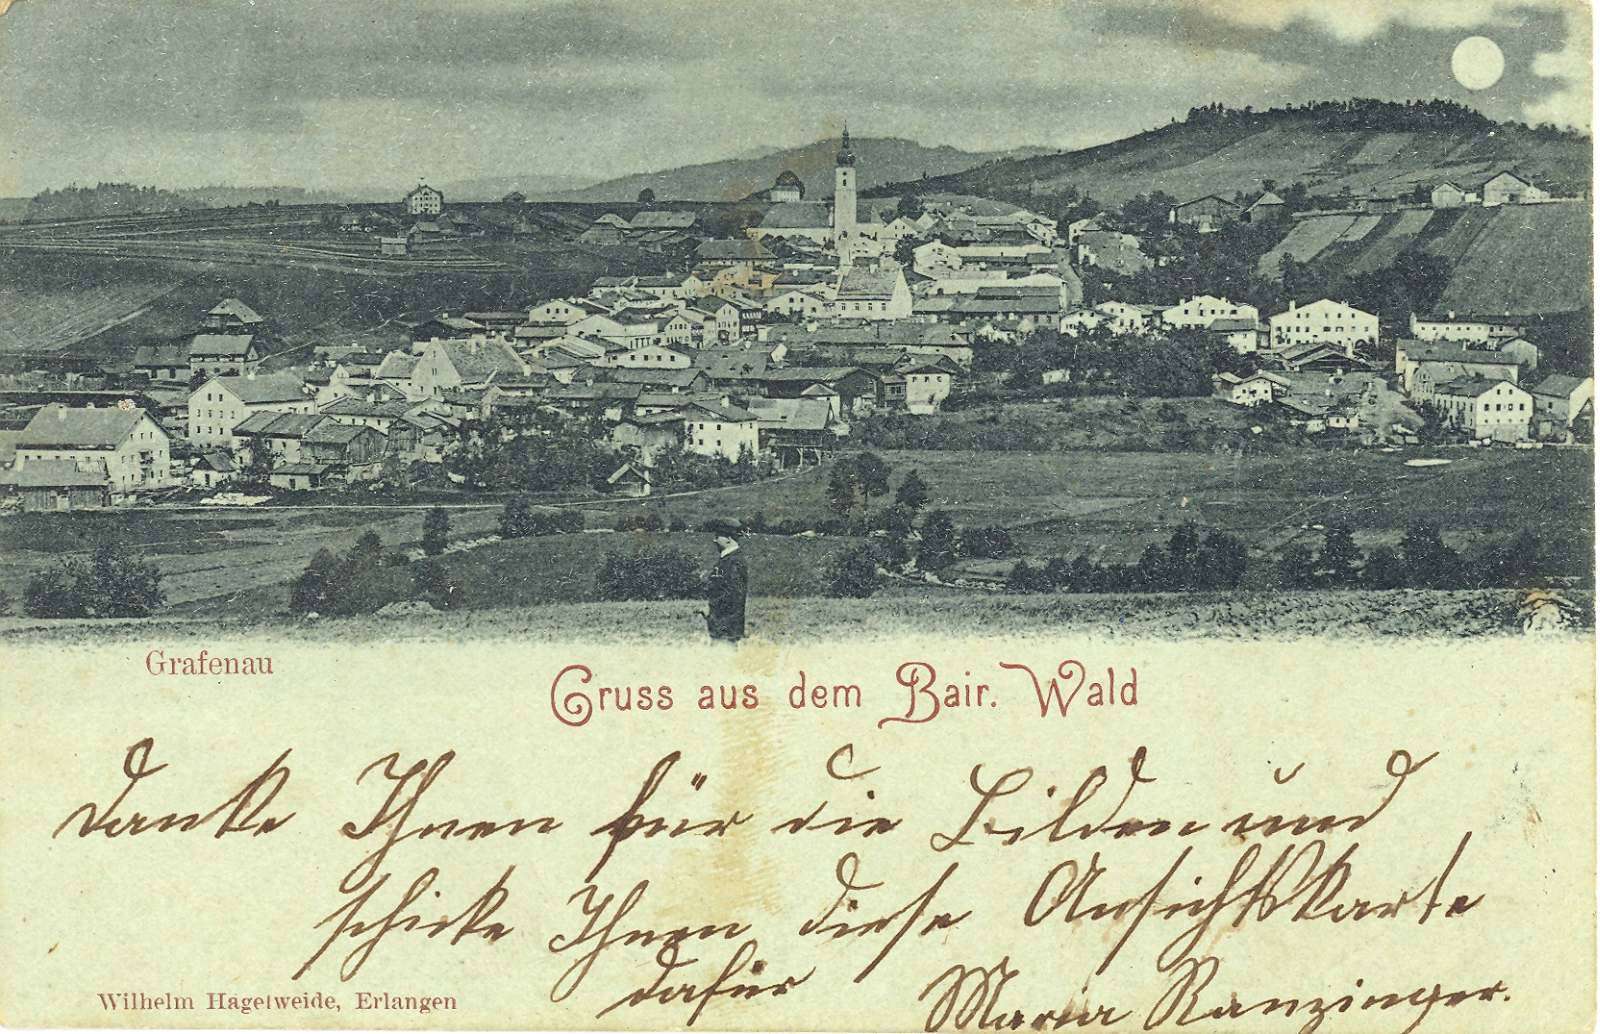 Grafenau
Gruss aus dem Bair. Wald
Danke Ihnen für die Bilder und
schicke Ihnen diese Ansichtskarte
dafür
Maria Ranzinger.
Wilhelm Hagelweide, Erlangen